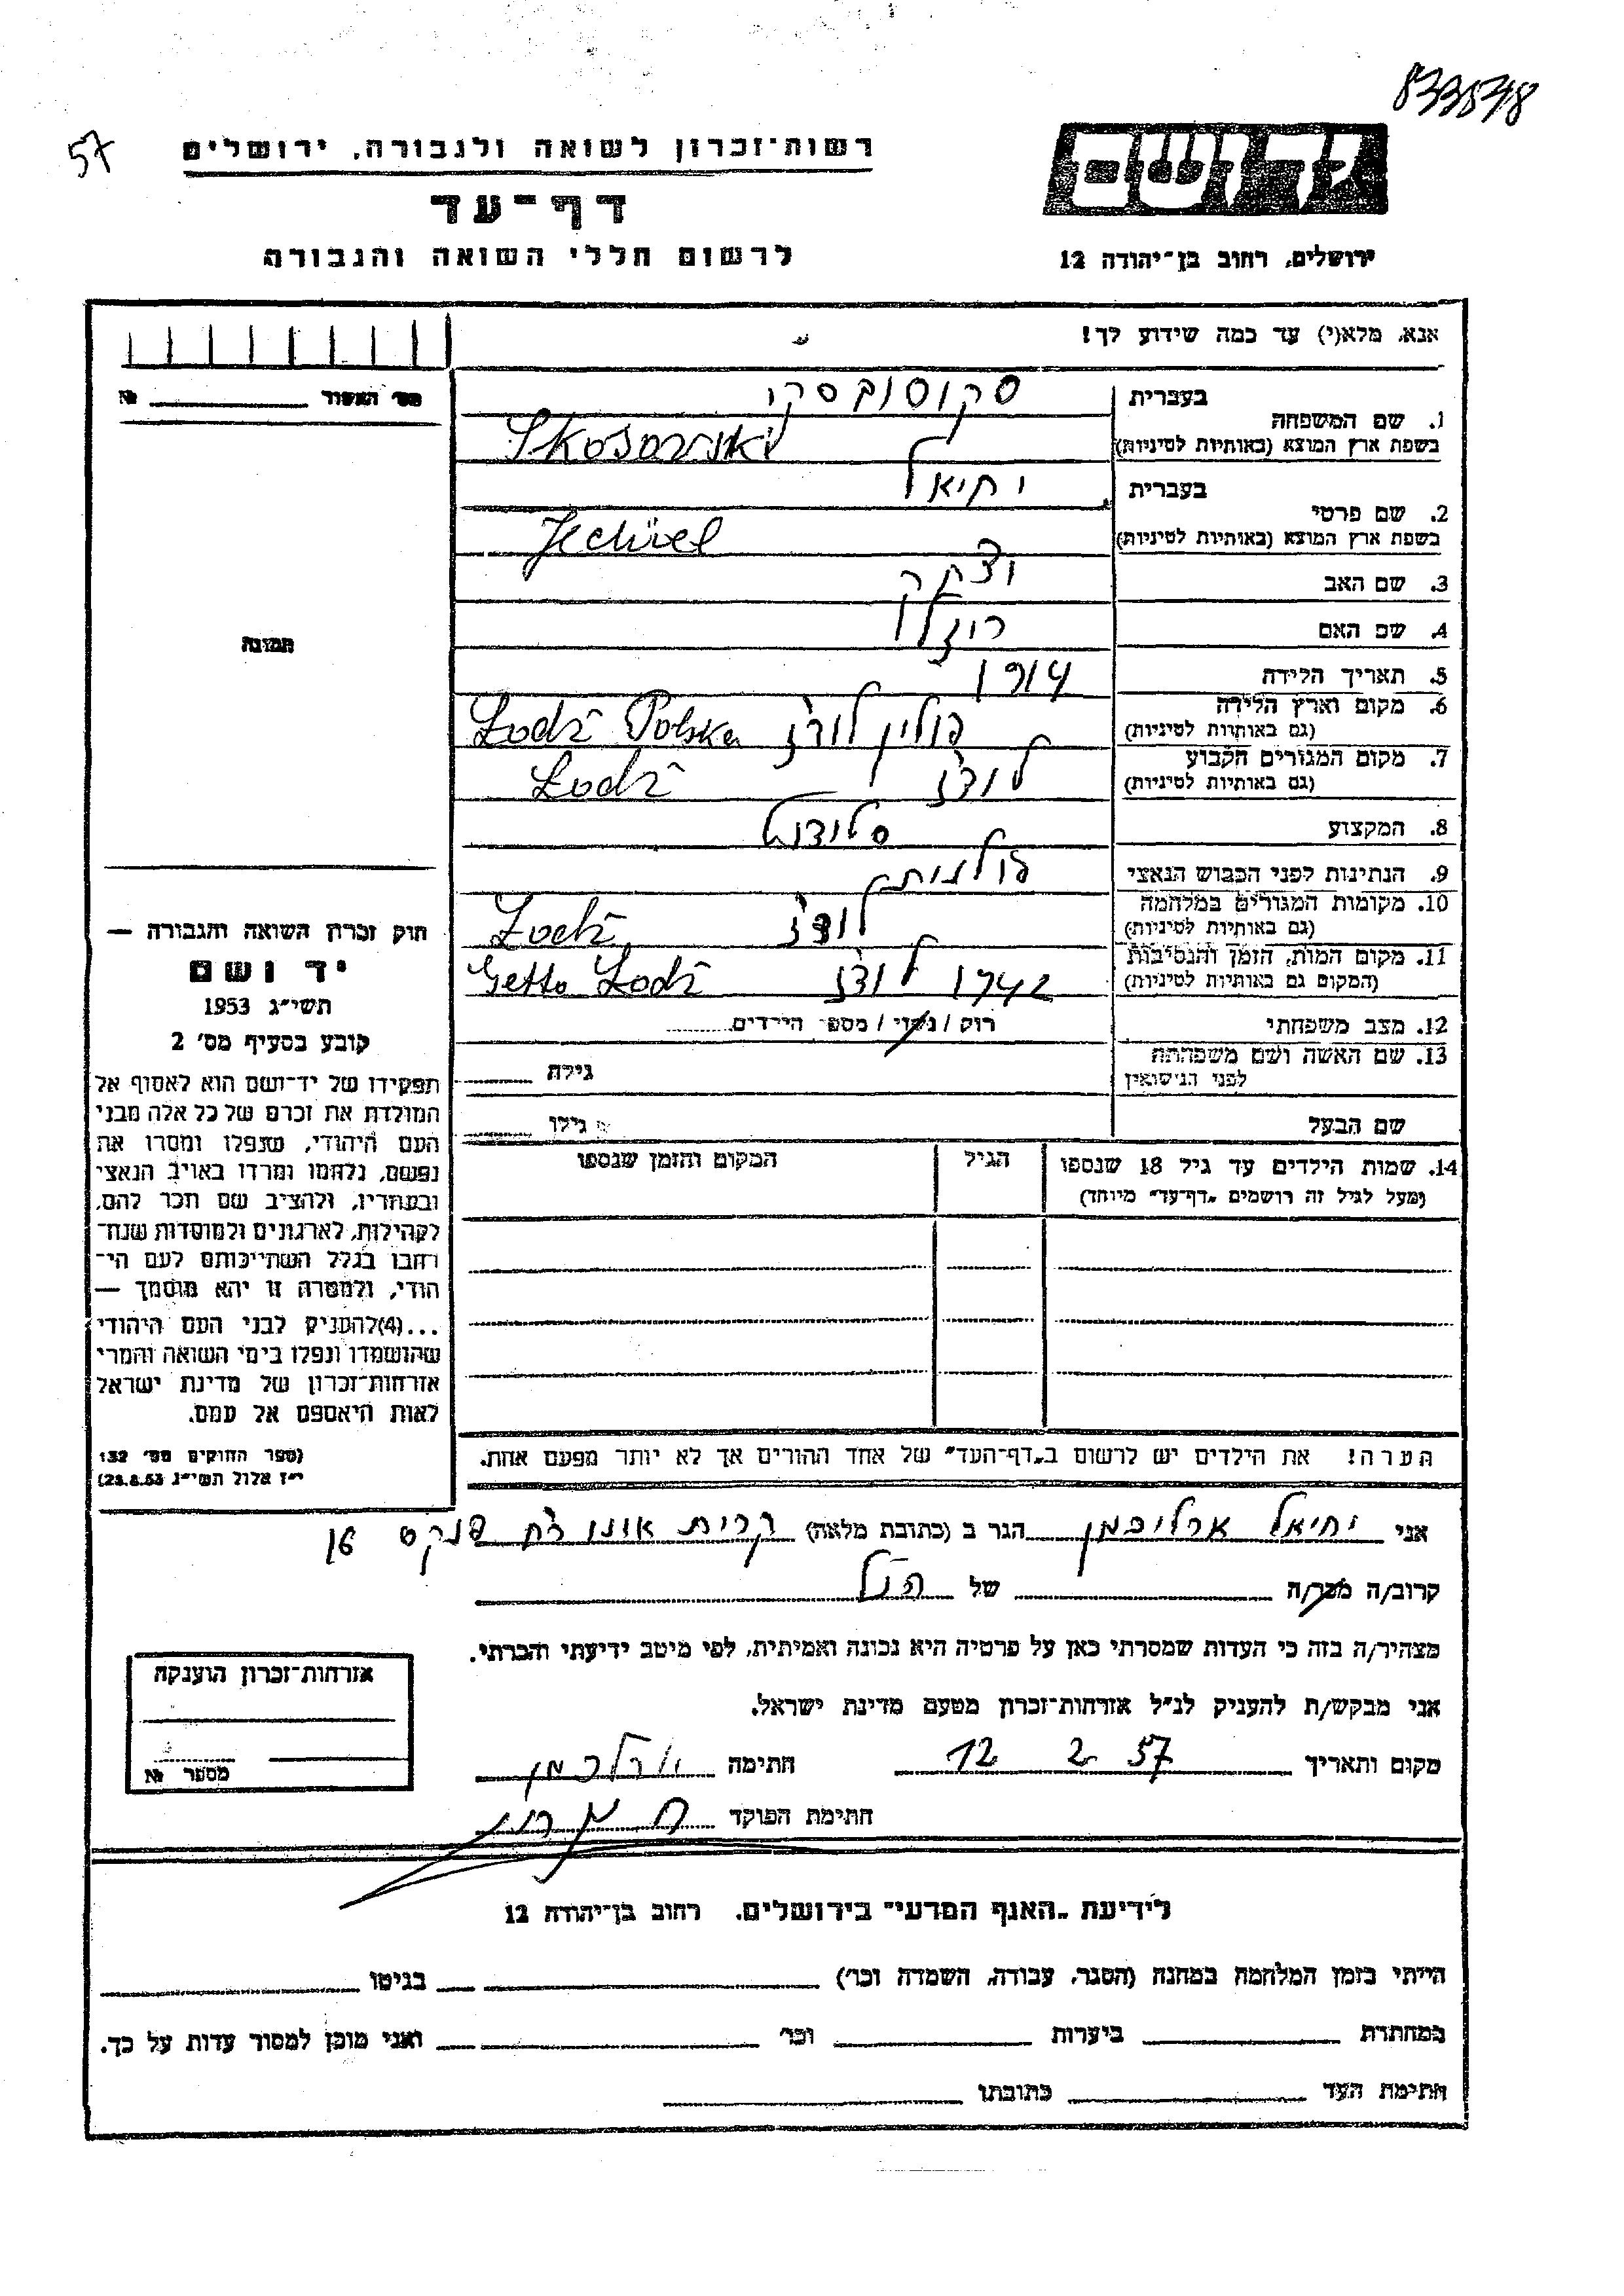 8335348
57
רשות־זכרון לשואה ולגבורה, ירושלים
דף־עד
לרשום חללי השואה והגבורה
ירושלים, רחוב בן־יהודה 12
אנא, מלא(י) עד כמה שידוע לך!
מס׳ האשור №
1. שם המשפחה בעברית סקוסובסקי
בשפת ארץ המוצא (באותיות לטיניות) Skosowski
2. שם פרטי בעברית יחיאל
בשפת ארץ המוצא (באותיות לטיניות) Jechiel
3. שם האב יצחק
4. שם האם
5. תאריך הלידה 1914
6. מקום וארץ הלידה (גם באותיות לטיניות) פולין לודז Lodź Polska
7. מקום המגורים הקבוע (גם באותיות לטיניות) לודז Lodź
8. המקצוע סטודנט
9. הנתינות לפני הכבוש הנאצי פולנית
10. מקומות המגורים במלחמה (גם באותיות לטיניות) לודז Lodź
11. מקום המות, הזמן והנסיבות (המקום גם באותיות לטיניות) 1942 לודז Getto Lodź
12. מצב משפחתי רווק / נשוי / מספר הילדים
13. שם האשה ושם משפחתה לפני הנישואין גילה
שם הבעל גילו
14. שמות הילדים עד גיל 18 שנספו הגיל המקום והזמן שנספו
(מעל לגיל זה רושמים „דף־עד״ מיוחד)
הערה! את הילדים יש לרשום ב„דף־העד״ של אחד ההורים אך לא יותר מפעם אחת.
תמונה
חוק זכרון השואה והגבורה —
יד ושם
תשי״ג 1953
קובע בסעיף מס׳ 2
תפקידו של יד־ושם הוא לאסוף אל
המולדת את זכרם של כל אלה מבני
העם היהודי, שנפלו ומסרו את
נפשם, נלחמו ומרדו באויב הנאצי
ובעוזריו, ולהציב שם וזכר להם,
לקהילות, לארגונים ולמוסדות שנח־
רבו בגלל השתייכותם לעם הי־
הודי, ולמטרה זו יהא מוסמך —
...(4)להעניק לבני העם היהודי
שהושמדו ונפלו בימי השואה והמרי
אזרחות־זכרון של מדינת ישראל
לאות היאספם אל עמם.
(ספר החוקים מס׳ 132
י״ז אלול תשי״ג 28.8.53)
אני יחיאל ארליכמן הגר ב (כתובת מלאה) קרית אונו
קרוב/ה מכר/ה של הנ״ל
מצהיר/ה בזה כי העדות שמסרתי כאן על פרטיה היא נכונה ואמיתית, לפי מיטב ידיעתי והכרתי.
אני מבקש/ת להעניק לנ״ל אזרחות־זכרון מטעם מדינת ישראל.
מקום ותאריך 12 2 57 חתימה
חתימת הפוקד
אזרחות־זכרון הוענקה
מספר №
לידיעת „האגף המדעי״ בירושלים. רחוב בן־יהודה 12
הייתי בזמן המלחמה במחנה (הסגר, עבודה, השמדה וכו׳) בגיטו
במחתרת ביערות וכו׳ ואני מוכן למסור עדות על כך.
חתימת העד כתובתו